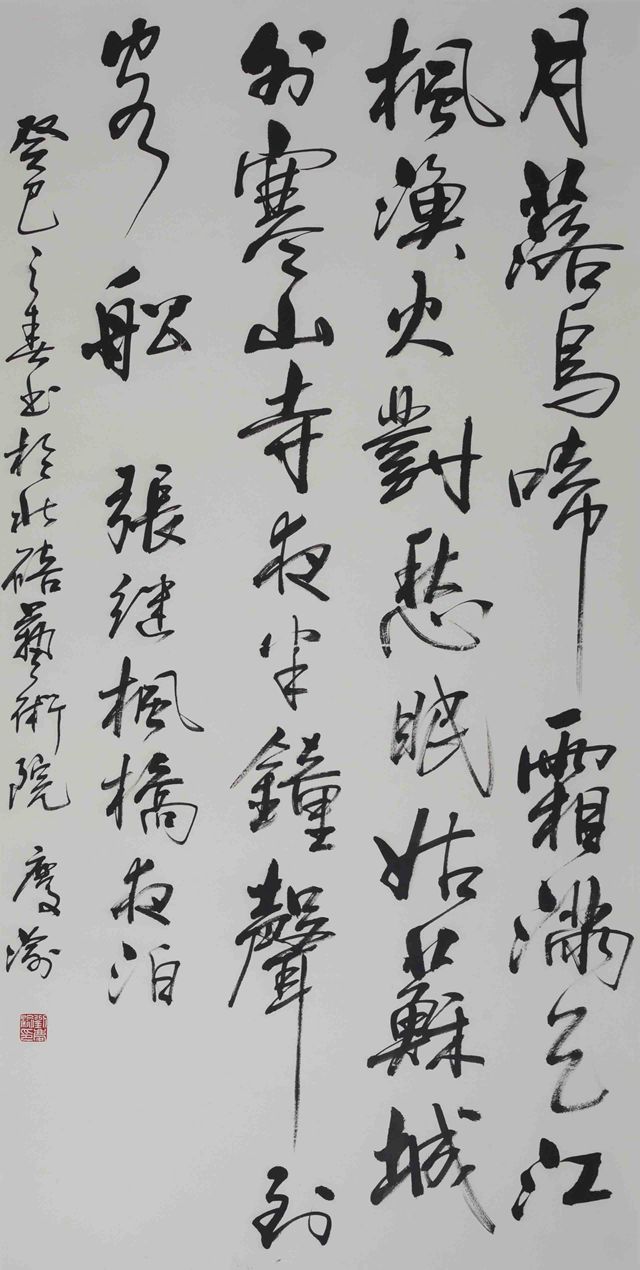 月落烏啼霜滿天江
楓漁火對愁眠姑蘇城
外寒山寺夜半鐘聲到
客船 張继楓橋夜泊
癸巳之春书於北碚藝術院 慶渝